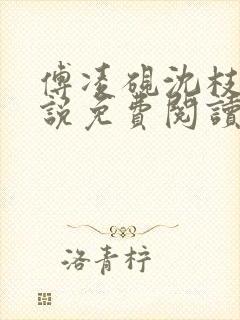 傅凌硯沈枝
說免費閱讀
洛青梓